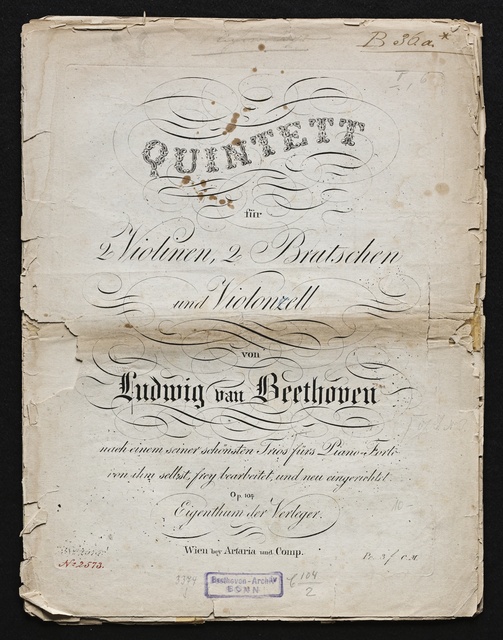 B 36a.*
QUINTETT
für
2 Violinen, 2 Bratschen
und Violonzell
von
Ludwig van Beethoven
nach einem seiner schönsten Trios fürs Piano-Forte
von ihm selbst, frey bearbeitet, und neu eingerichtet.
Op 104
Eigenthum der Verleger.
Wien bey Artaria und Comp.
No 2573.
Beethoven-Archiv
BONN
C 104
2